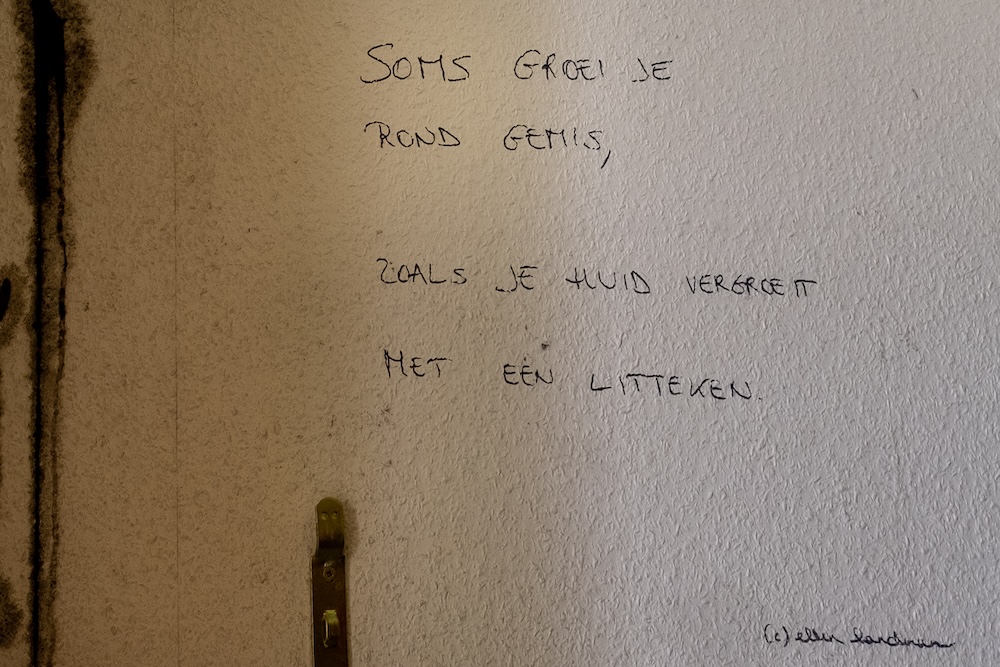 SOMS GROEI JE
ROND GEMIS,
ZOALS JE HUID VERGROEIT
MET EEN LITTEKEN.
(c) ellen